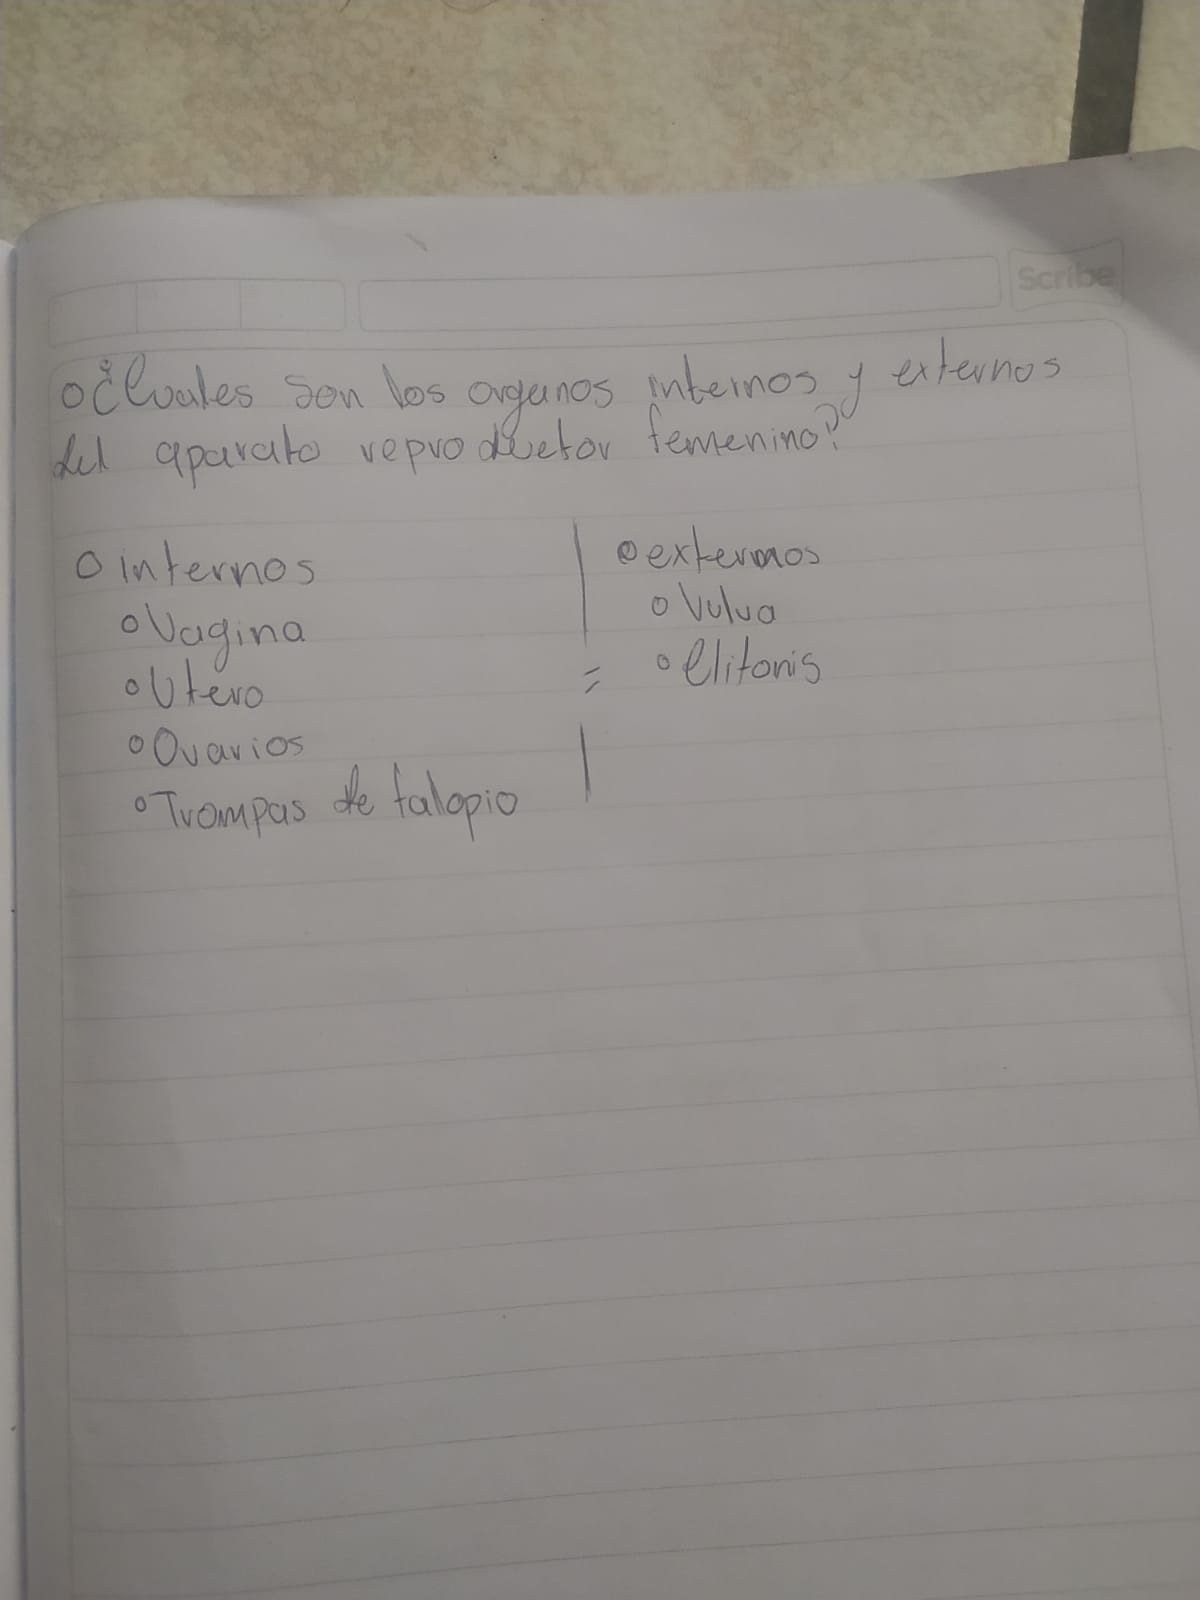 Scribe
○ ¿Cuales son los organos internos y externos
del aparato reproductor femenino?
○ internos
○ Vagina
○ Utero
○ Ovarios
○ Trompas de falopio
○ externos
○ Vulva
○ Clitoris